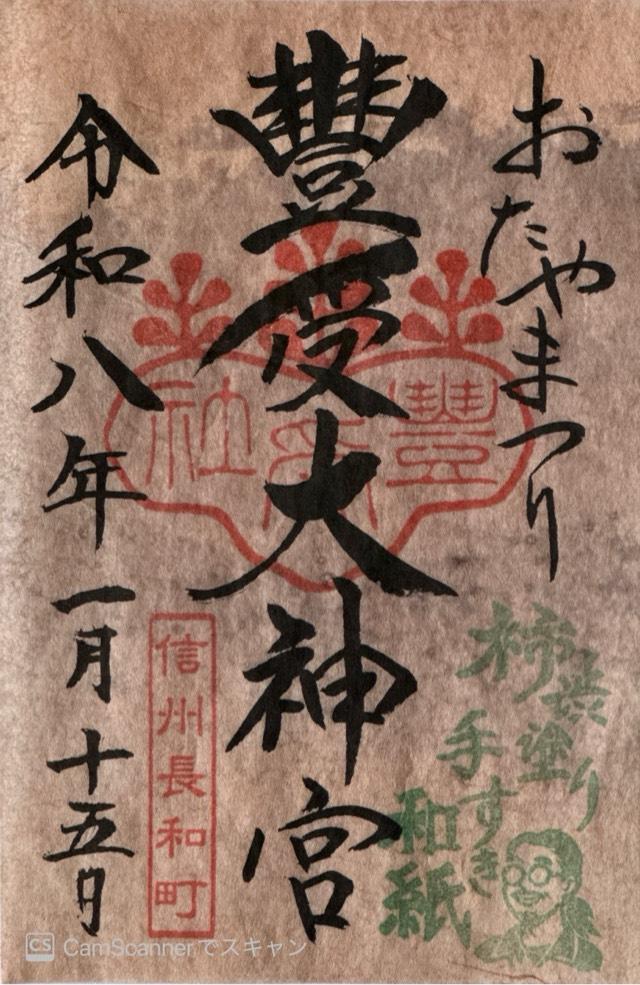 おたやまつり
豐受大神宮
令和八年一月十五日
豐受社
信州長和町
柿渋塗り
手すき
和紙
CS CamScannerでスキャン